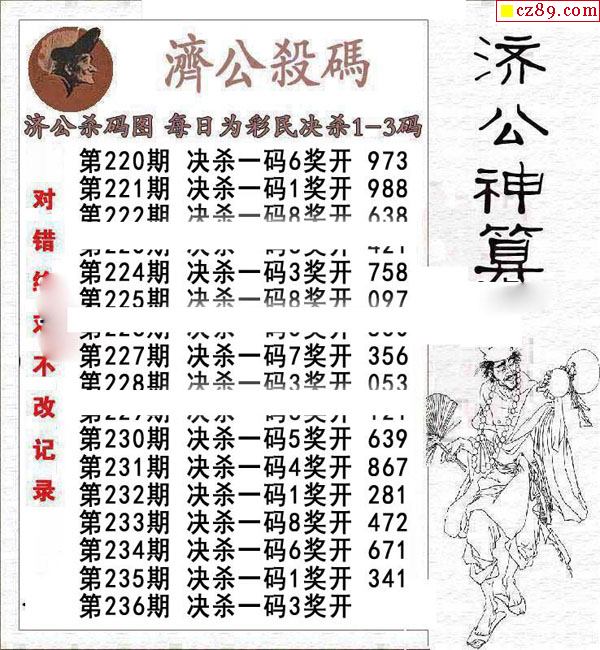 cz89.com
濟公殺碼
济公杀码图 每日为彩民决杀1-3码
第220期 决杀一码6奖开 973
第221期 决杀一码1奖开 988
第222期 决杀一码8奖开 638
第224期 决杀一码3奖开 758
第225期 决杀一码8奖开 097
第227期 决杀一码7奖开 356
第228期 决杀一码3奖开 053
第230期 决杀一码5奖开 639
第231期 决杀一码4奖开 867
第232期 决杀一码1奖开 281
第233期 决杀一码8奖开 472
第234期 决杀一码6奖开 671
第235期 决杀一码1奖开 341
第236期 决杀一码3奖开
对错
不改记录
济公神算